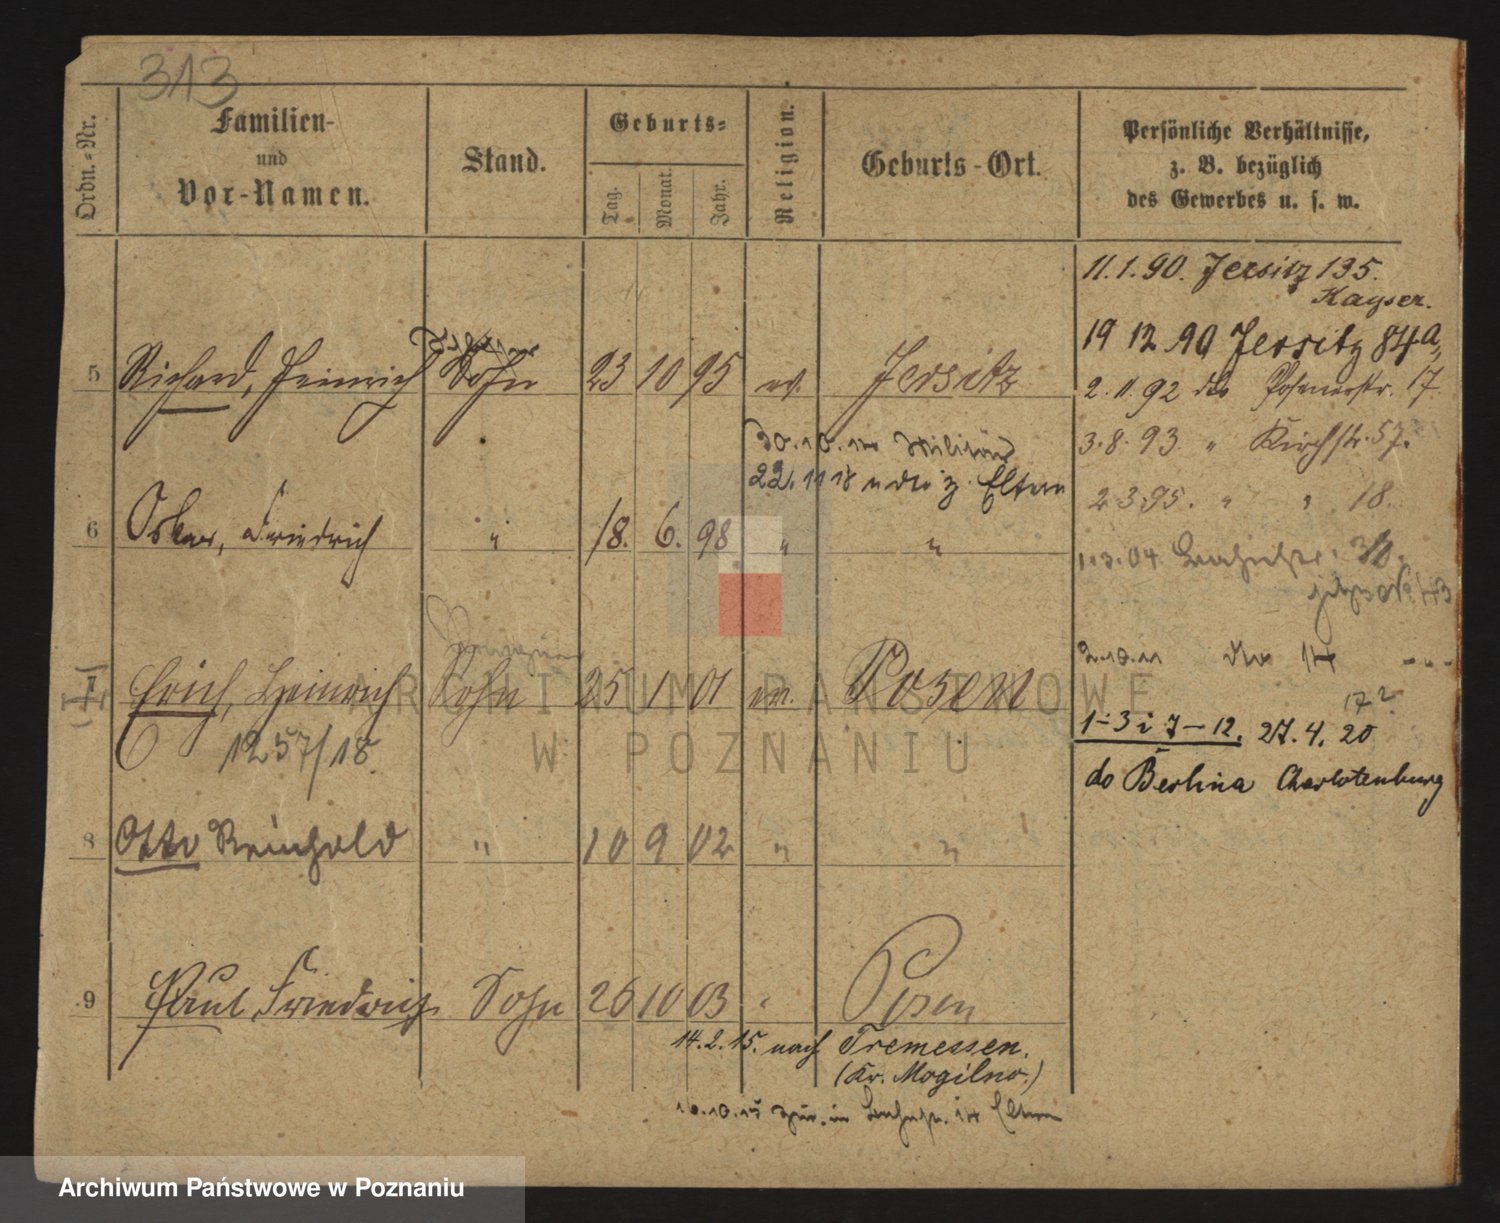 313
Ordn.-Nr.
Familien-
und
Vor-Namen.
Stand.
Geburts-
Tag.
Monat.
Jahr.
Religion.
Geburts-Ort.
Persönliche Verhältnisse,
z. B. bezüglich
des Gewerbes u. s. w.
11.1.90. Jersitz 135.
Kayser.
19 12 90 Jersitz 84a,
5 Richard, Heinrich Sohn 23 10 95 ev. Jersitz
2. 11. 92 do Posenerstr. 17
3. 8. 93. " Kirchstr. 57.
30.10.14 Militär
22. 11 18 z. Eltern
2 3 95. " " 18.
6 Oskar, Friedrich " 18. 6. 98 " "
1. 3. 04
2.10.11 14
7 Erich, Heinrich Sohn 25 1 01 ev. Posen
1257/18
1-3 i 7-12. 27. 4. 20
do Berlina Charlotenburg
8 Otto Reinhold " 10 9 02 " "
9 Paul Friedrich Sohn 26 10 03 " Posen
14. 2. 15. nach Tremessen.
(Kr. Mogilno.)
16.10.15 in Eltern
ARCHIWUM PAŃSTWOWE
W POZNANIU
Archiwum Państwowe w Poznaniu